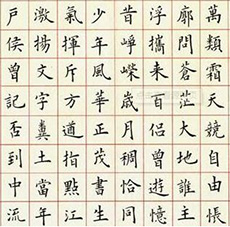 萬類霜天競自由悵
廓問蒼茫大地誰主
浮攜來百侶曾遊憶
昔崢嶸歲月稠恰同
少年風華正茂書生
氣揮斥方遒指點江
激揚文字糞土當年
戶侯曾記否到中流